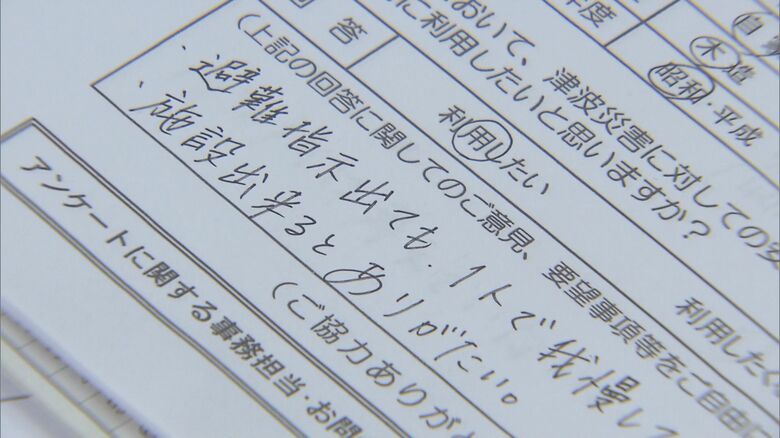 年度
自
木造
昭和・平成
おいて、津波災害に対しての
に利用したいと思いますか?
回答
利用したい
利用したく
(上記の回答に関してのご意見、要望事項等をご自由に
・避難指示出ても、1人で我慢して
・施設出来るとありがたい。
(ご協力ありが
アンケートに関する事務担当・お問